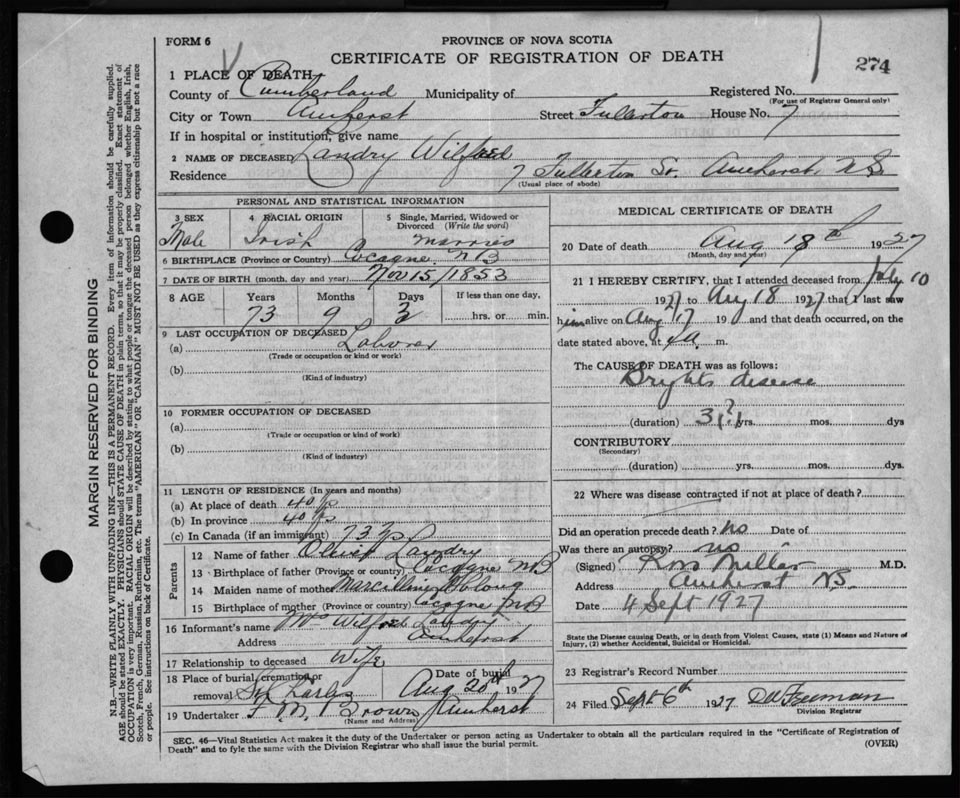 FORM 6
PROVINCE OF NOVA SCOTIA
274
CERTIFICATE OF REGISTRATION OF DEATH
1 PLACE OF DEATH
County of Cumberland Municipality of Registered No.
(For use of Registrar General only)
City or Town Amherst Street Fullerton House No. 7
If in hospital or institution, give name
2 NAME OF DECEASED Landry Wilfred
Residence 7 Fullerton St. Amherst, N.S.
(Usual place of abode)
PERSONAL AND STATISTICAL INFORMATION
3 SEX Male
4 RACIAL ORIGIN Irish
5 Single, Married, Widowed or Divorced (Write the word) Married
6 BIRTHPLACE (Province or Country) Cocagne NB
7 DATE OF BIRTH (month, day and year) Nov 15/1853
8 AGE Years Months Days If less than one day,
73 9 3 hrs. or min.
9 LAST OCCUPATION OF DECEASED
(a) Laborer
(Trade or occupation or kind or work)
(b)
(Kind of industry)
10 FORMER OCCUPATION OF DECEASED
(a)
(Trade or occupation or kind of work)
(b)
(Kind of industry)
11 LENGTH OF RESIDENCE (In years and months)
(a) At place of death 40 ys
(b) In province 40 ys
(c) In Canada (if an immigrant) 73 ys
Parents
12 Name of father Landry
13 Birthplace of father (Province or country) Cocagne NB
14 Maiden name of mother
15 Birthplace of mother (Province or country) Cocagne NB
16 Informant's name Mrs Wilfred Landry
Address Amherst
17 Relationship to deceased Wife
18 Place of burial, cremation or removal Date of burial
Aug 20th 1927
19 Undertaker F. M. Brown Amherst
(Name and Address)
MEDICAL CERTIFICATE OF DEATH
20 Date of death Aug 18th 1927
(Month, day and year)
21 I HEREBY CERTIFY, that I attended deceased from July 10
1927 to Aug 18 1927 that I last saw
him alive on Aug 17 19 and that death occurred, on the
date stated above, at m.
The CAUSE OF DEATH was as follows:
Brights disease
(duration) 3 ? yrs. mos. dys
CONTRIBUTORY
(Secondary)
(duration) yrs. mos. dys.
22 Where was disease contracted if not at place of death?
Did an operation precede death? no Date of
Was there an autopsy? no
(Signed) Ross Millar M.D.
Address Amherst N.S.
Date 4 Sept 1927
State the Disease causing Death, or in death from Violent Causes, state (1) Means and Nature of
Injury, (2) whether Accidental, Suicidal or Homicidal.
23 Registrar's Record Number
24 Filed Sept 6th 1927 Freeman
Division Registrar
SEC. 46—Vital Statistics Act makes it the duty of the Undertaker or person acting as Undertaker to obtain all the particulars required in the "Certificate of Registration of
Death" and to fyle the same with the Division Registrar who shall issue the burial permit.
(OVER)
MARGIN RESERVED FOR BINDING
N.B.—WRITE PLAINLY WITH UNFADING INK—THIS IS A PERMANENT RECORD. Every item of information should be carefully supplied.
AGE should be stated EXACTLY. PHYSICIANS should STATE CAUSE OF DEATH in plain terms, so that it may be properly classified. Exact statement of
OCCUPATION is very important. RACIAL ORIGIN will be described by stating to what people or tongue the deceased person belonged whether English, Irish,
Scotch, French, German, Russian, Ruthenian, etc. The terms "AMERICAN" OR "CANADIAN" MUST NOT BE USED as they express citizenship but not a race
or people. See instructions on back of Certificate.